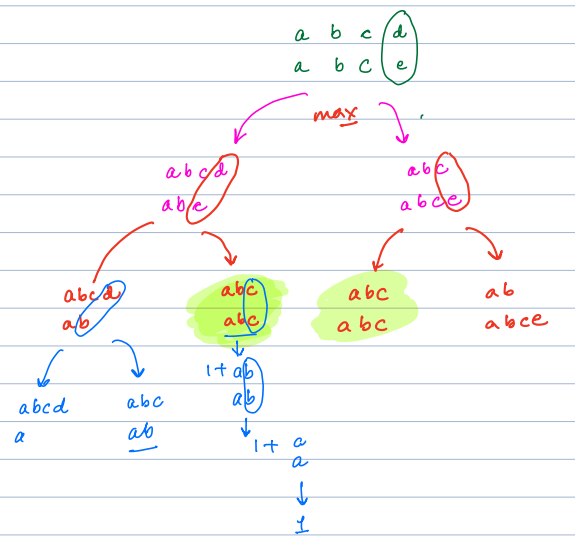 a b c d
a b c e
max
abcd
abe
abc
abce
abcd
ab
abc
abc
abc
abc
ab
abce
abcd
a
abc
ab
1+ ab
ab
1+ a
a
1